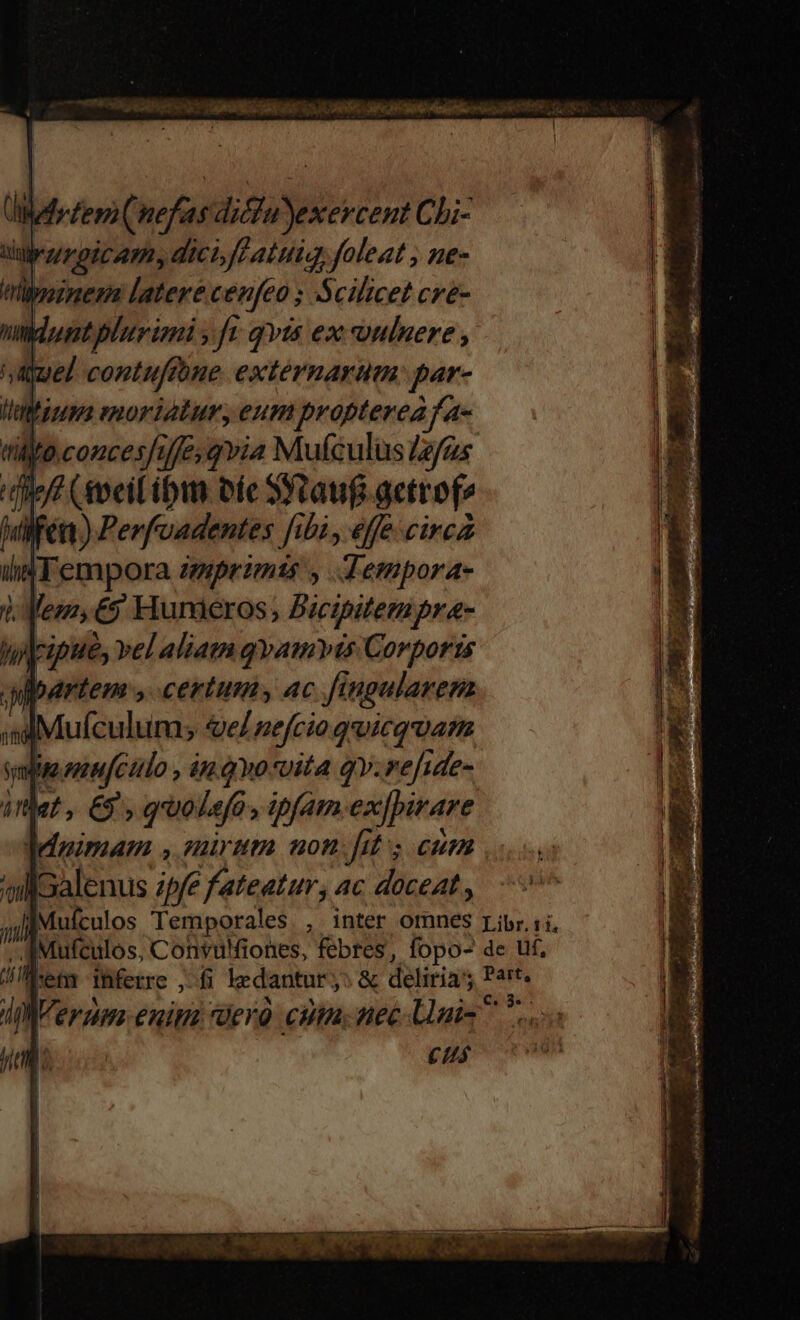 Artem (nefas dictu) exercent Chi-
rurgicam, dici, ſtatuiq; ſoleat, ne-
minem latere cenſeo; Scilicet cre-
dunt plurimi, ſi qvis ex vulnere,
vel contuſione externarum par-
tium moriatur, eum propterea fa-
to concesſiſſe, qvia Muſculus læſus
eſt (weil ihm die Mauß getroſ-
fen) Perſvadentes ſibi, eſſe circà
Tempora imprimis, Tempora-
lem, & Humeros, Bicipitem præ-
cipuè, vel aliam qvamvis Corporis
partem, certum, ac ſingularem
Muſculum, vel neſcio qvicqvam
in muſculo, in qvo vita qv. reſide-
at, &, qvo læſo, ipſam exſpirare
Animam, mirum non ſit; cùm
Galenus ipſe fateatur, ac doceat,
Muſculos Temporales, inter omnes Libr. 11,
Muſculos, Convulſiones, febres, ſopo- de Uſ.
rem inferre, ſi lædantur, & deliria; Part.
Verùm enim verò cùm nec Uni- C. 3.
cus